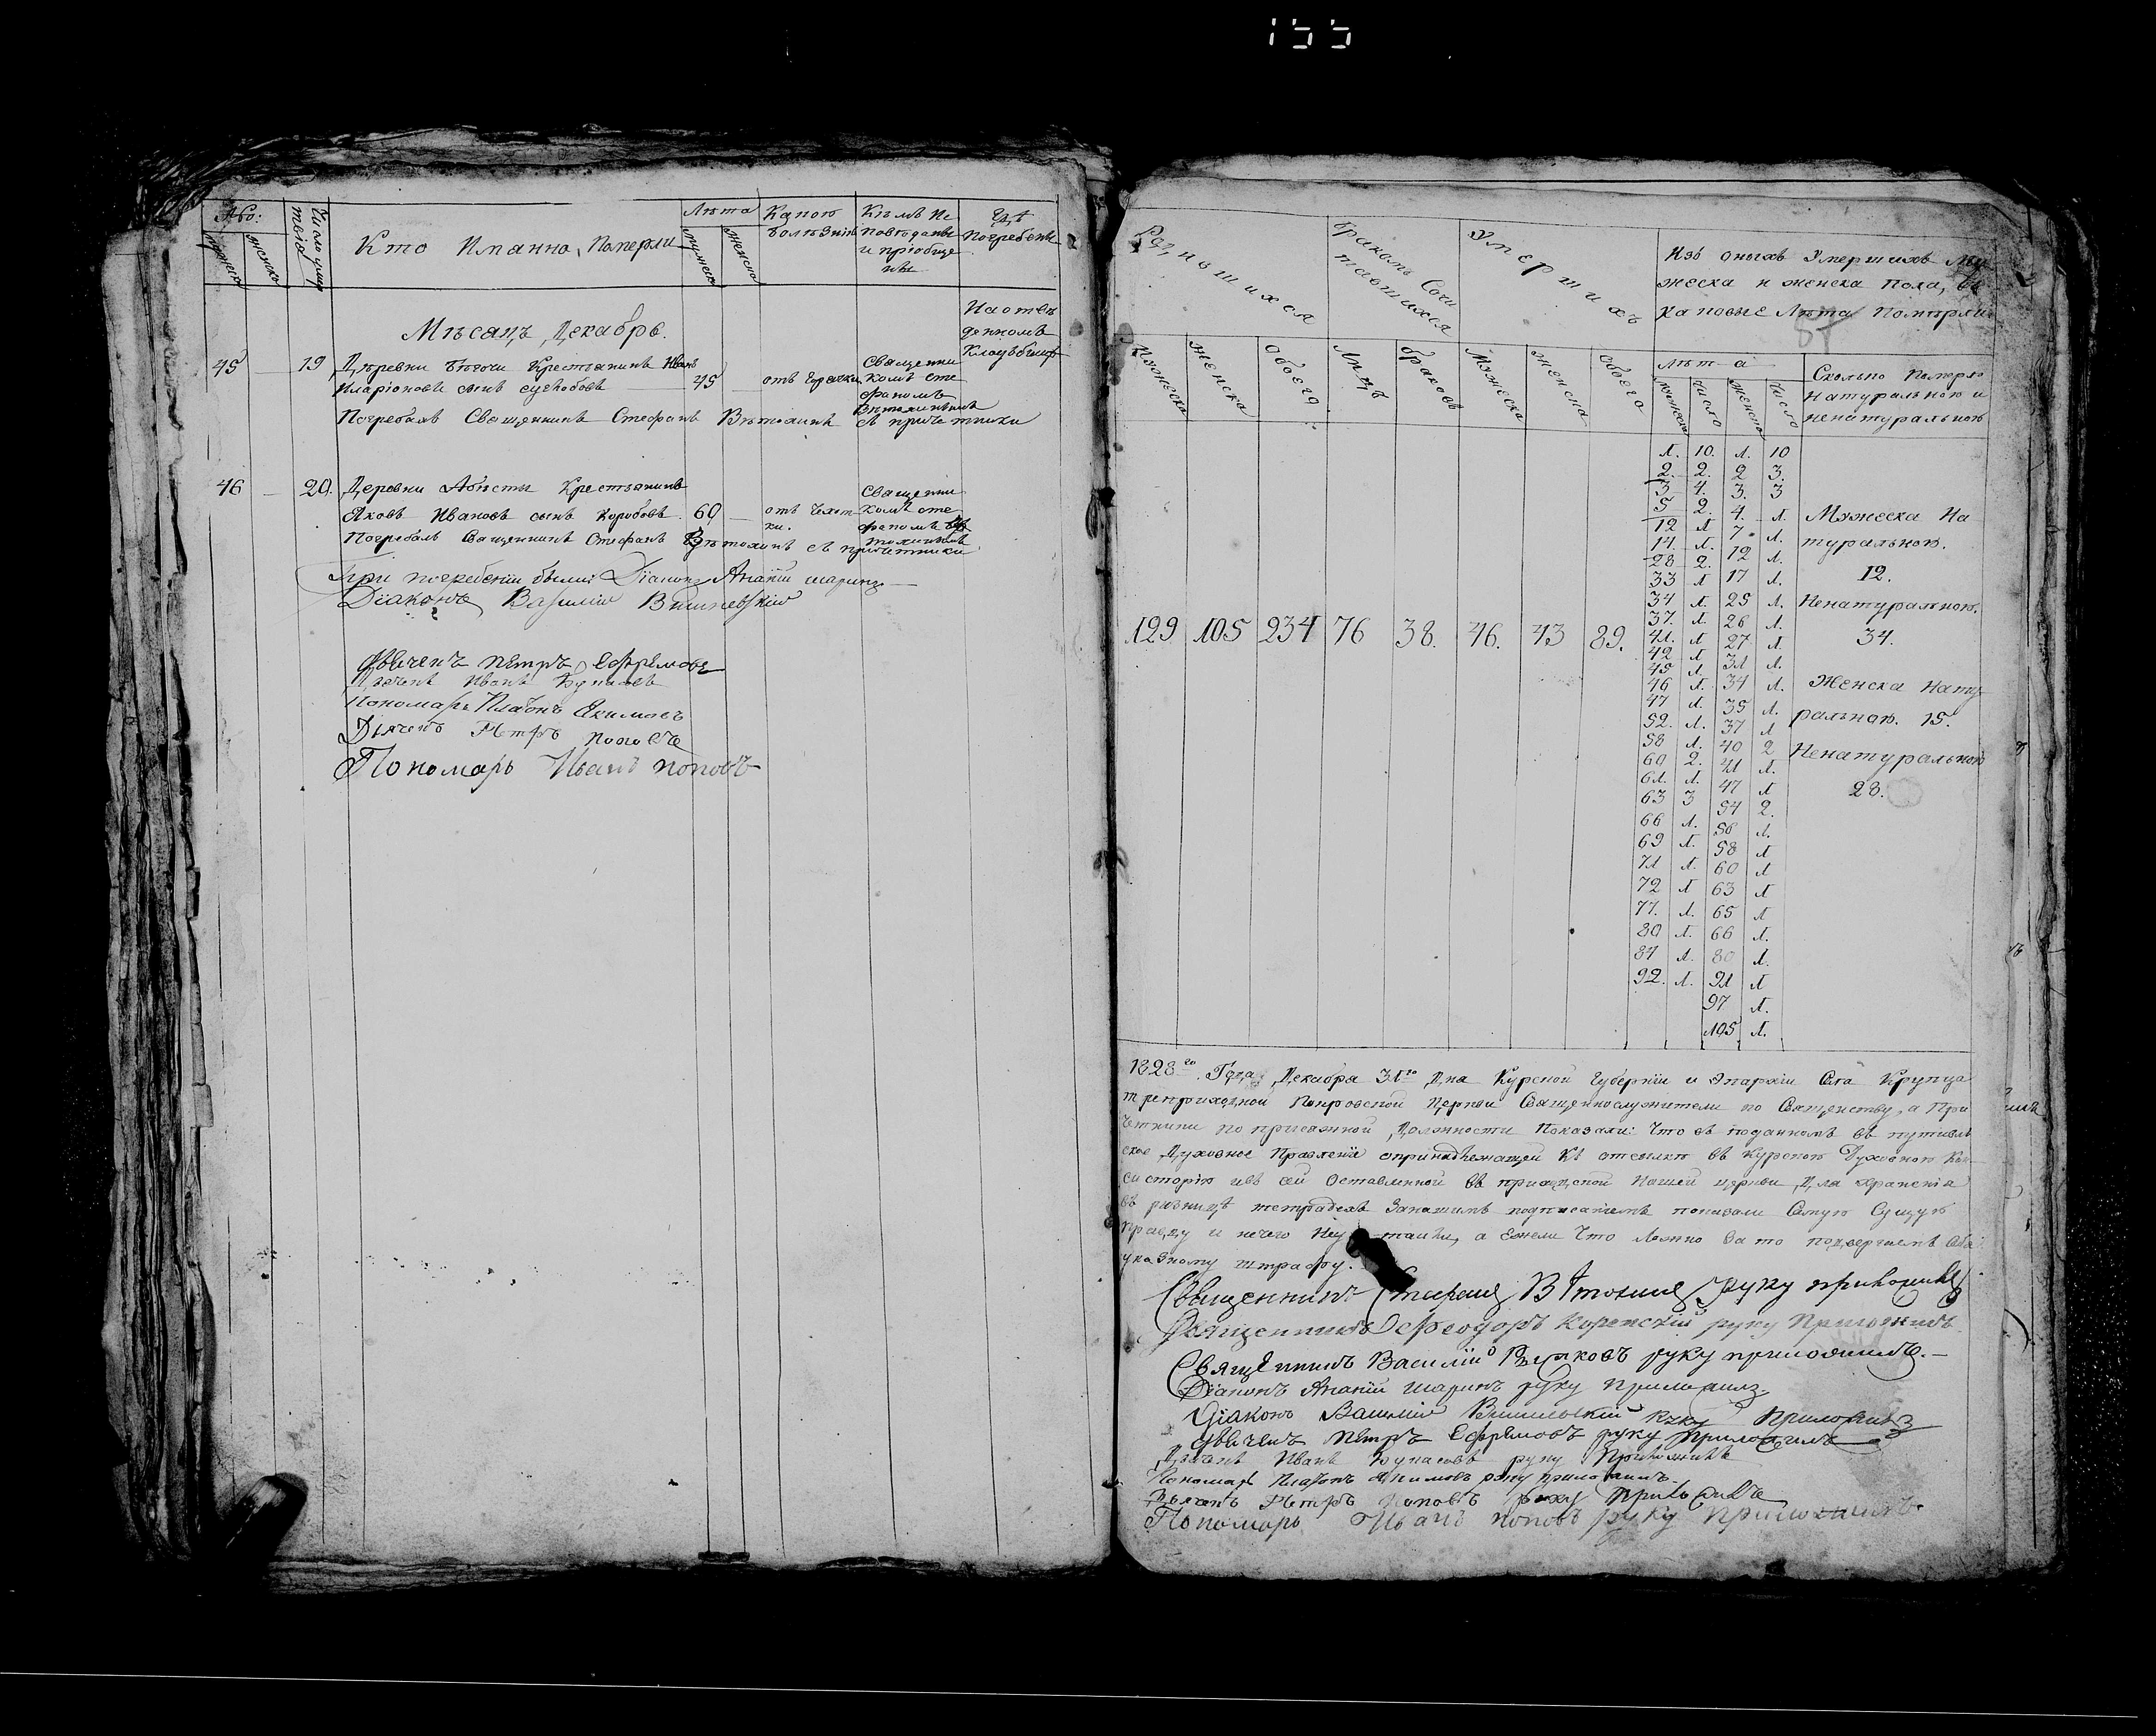 155
№: Число умертвія Кто Имянно, Померли Лѣта Какою болѣзнію Кѣмъ Исповѣданы и пріобщены Гдѣ Погребены
мужеска женска мужеска женска
Мѣсяцъ Декабрь.
На отведенномъ Кладъбищѣ
45 — 19 Деревни Крестьянинъ Иванъ
Иларіоновъ сынъ 45 — отъ Горячки
Священникомъ Стефаномъ Вѣтохинымъ
Погребалъ Священникъ Стефанъ Вѣтохинъ съ причетники
46 — 20. Деревни Крестьянинъ
Яковъ Ивановъ сынъ Коробовъ. 60 — отъ Чахотки.
Священникомъ Стефаномъ Вѣтохинымъ
Погребалъ Священникъ Стефанъ Вѣтохинъ съ причетники
При погребеніи были: Діаконъ Ананій Шаринъ —
Діаконъ Василій Вишневскій
Дьячекъ Петръ Ефремовъ
Дьячекъ Иванъ
Пономарь Платонъ Якимовъ
Дьячекъ Петръ Поповъ
Пономарь Иванъ Поповъ
Родившихся бракомъ Сочитавшихся Умершихъ Изъ оныхъ Умершихъ Мужеска и женска Пола, въ Каковые Лѣта Померли
Мужеска Женска Обоего Лицъ браковъ Мужеска Женска Обоего лѣта Сколько Померло натуральною и ненатуральною
мужеска число женска число
129 105 234 76 38. 46. 43 89.
1. 10. 1. 10
2. 2. 2 3.
3 4. 3. 3
5 2. 4. 1.
12 1 7. 1.
14. 1. 12 1.
28 2. 17 1.
33 1 25 1.
34 1. 26 1.
37. 1. 27 1.
41. 1 31 1.
42 1 34 1.
45 1. 35 1.
46 1. 37 1
47 1. 40 2
52. 1. 41 1.
58 1. 47 1
60 2. 54 2.
61. 1. 56 1.
63 3 58 1
66 1. 60 1
69 1. 63 1
71 1. 65 1
72 1 66 1.
77. 1. 80 1.
80 1. 91 1
87 1. 97 1.
92. 1. 105 1.
Мужеска Натуральною.
12.
Ненатуральною.
34.
Женска Натуральною. 15.
Ненатуральною
28.
1828го Года Декабря 31го Дня Курской Губерніи и Епархіи Села Крупца
трехприходной Покровской Церкви Священнослужители по Священству, а При
четники по присяжной Должности Показали: Что въ поданномъ въ путивль
ское Духовное Правленіе къ отсылке въ Курскою Духовною Кон
систорію и въ сей Оставленной въ приходской Нашей церкви Для храненія
въ ризницѣ тетрадехъ Занашимъ подписаніемъ показали Самую Сущую
Правду и нечего Неутаили, а Ежели Что Ложно За то подвергаемъ Себя
указному штрафу.
Священникъ Стефанъ Вѣтохинъ руку приложилъ
Священникъ Феодоръ Коренскій руку Приложилъ
Священникъ Василій руку приложилъ. —
Діаконъ Ананій Шаринъ руку приложилъ
Діаконъ Василій Вишневскій руку приложилъ
Дьячекъ Петръ Ефремовъ руку приложилъ
Дьячекъ Иванъ руку Приложилъ
Пономарь Платонъ Якимовъ руку приложилъ
Дьячекъ Петръ Поповъ руку приложилъ
Пономарь Иванъ поповъ руку приложилъ